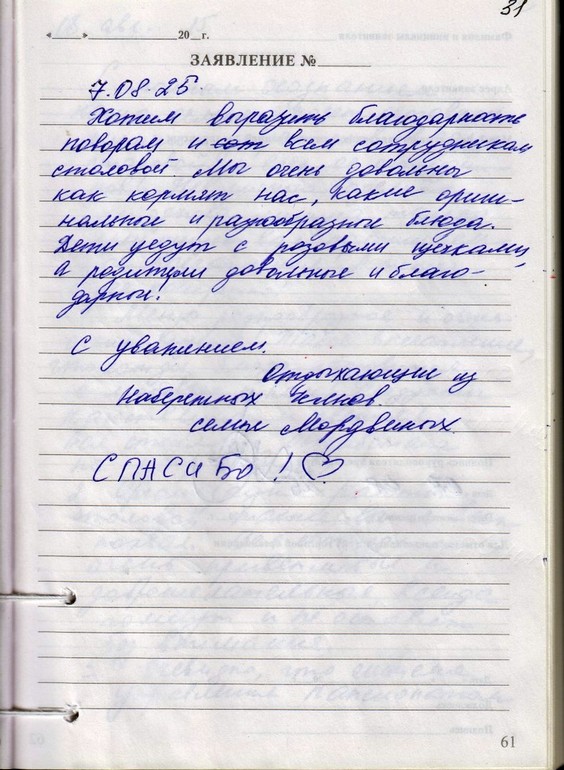 31
«___»__________20__г.
ЗАЯВЛЕНИЕ №_______
7.08.25.
Хотим выразить благодарность
поворам и сот всем сотрудникам
столовой. Мы очень довольны
как кормят нас, какие ориги-
нальные и разнообразные блюда.
Дети уедут с розовыми щечками,
а родители довольные и благо-
дарные!
С уважением.
Отдыхающие из
Набережных Челнов
семья Мордвиных.
СПАСИБО! ♡
61